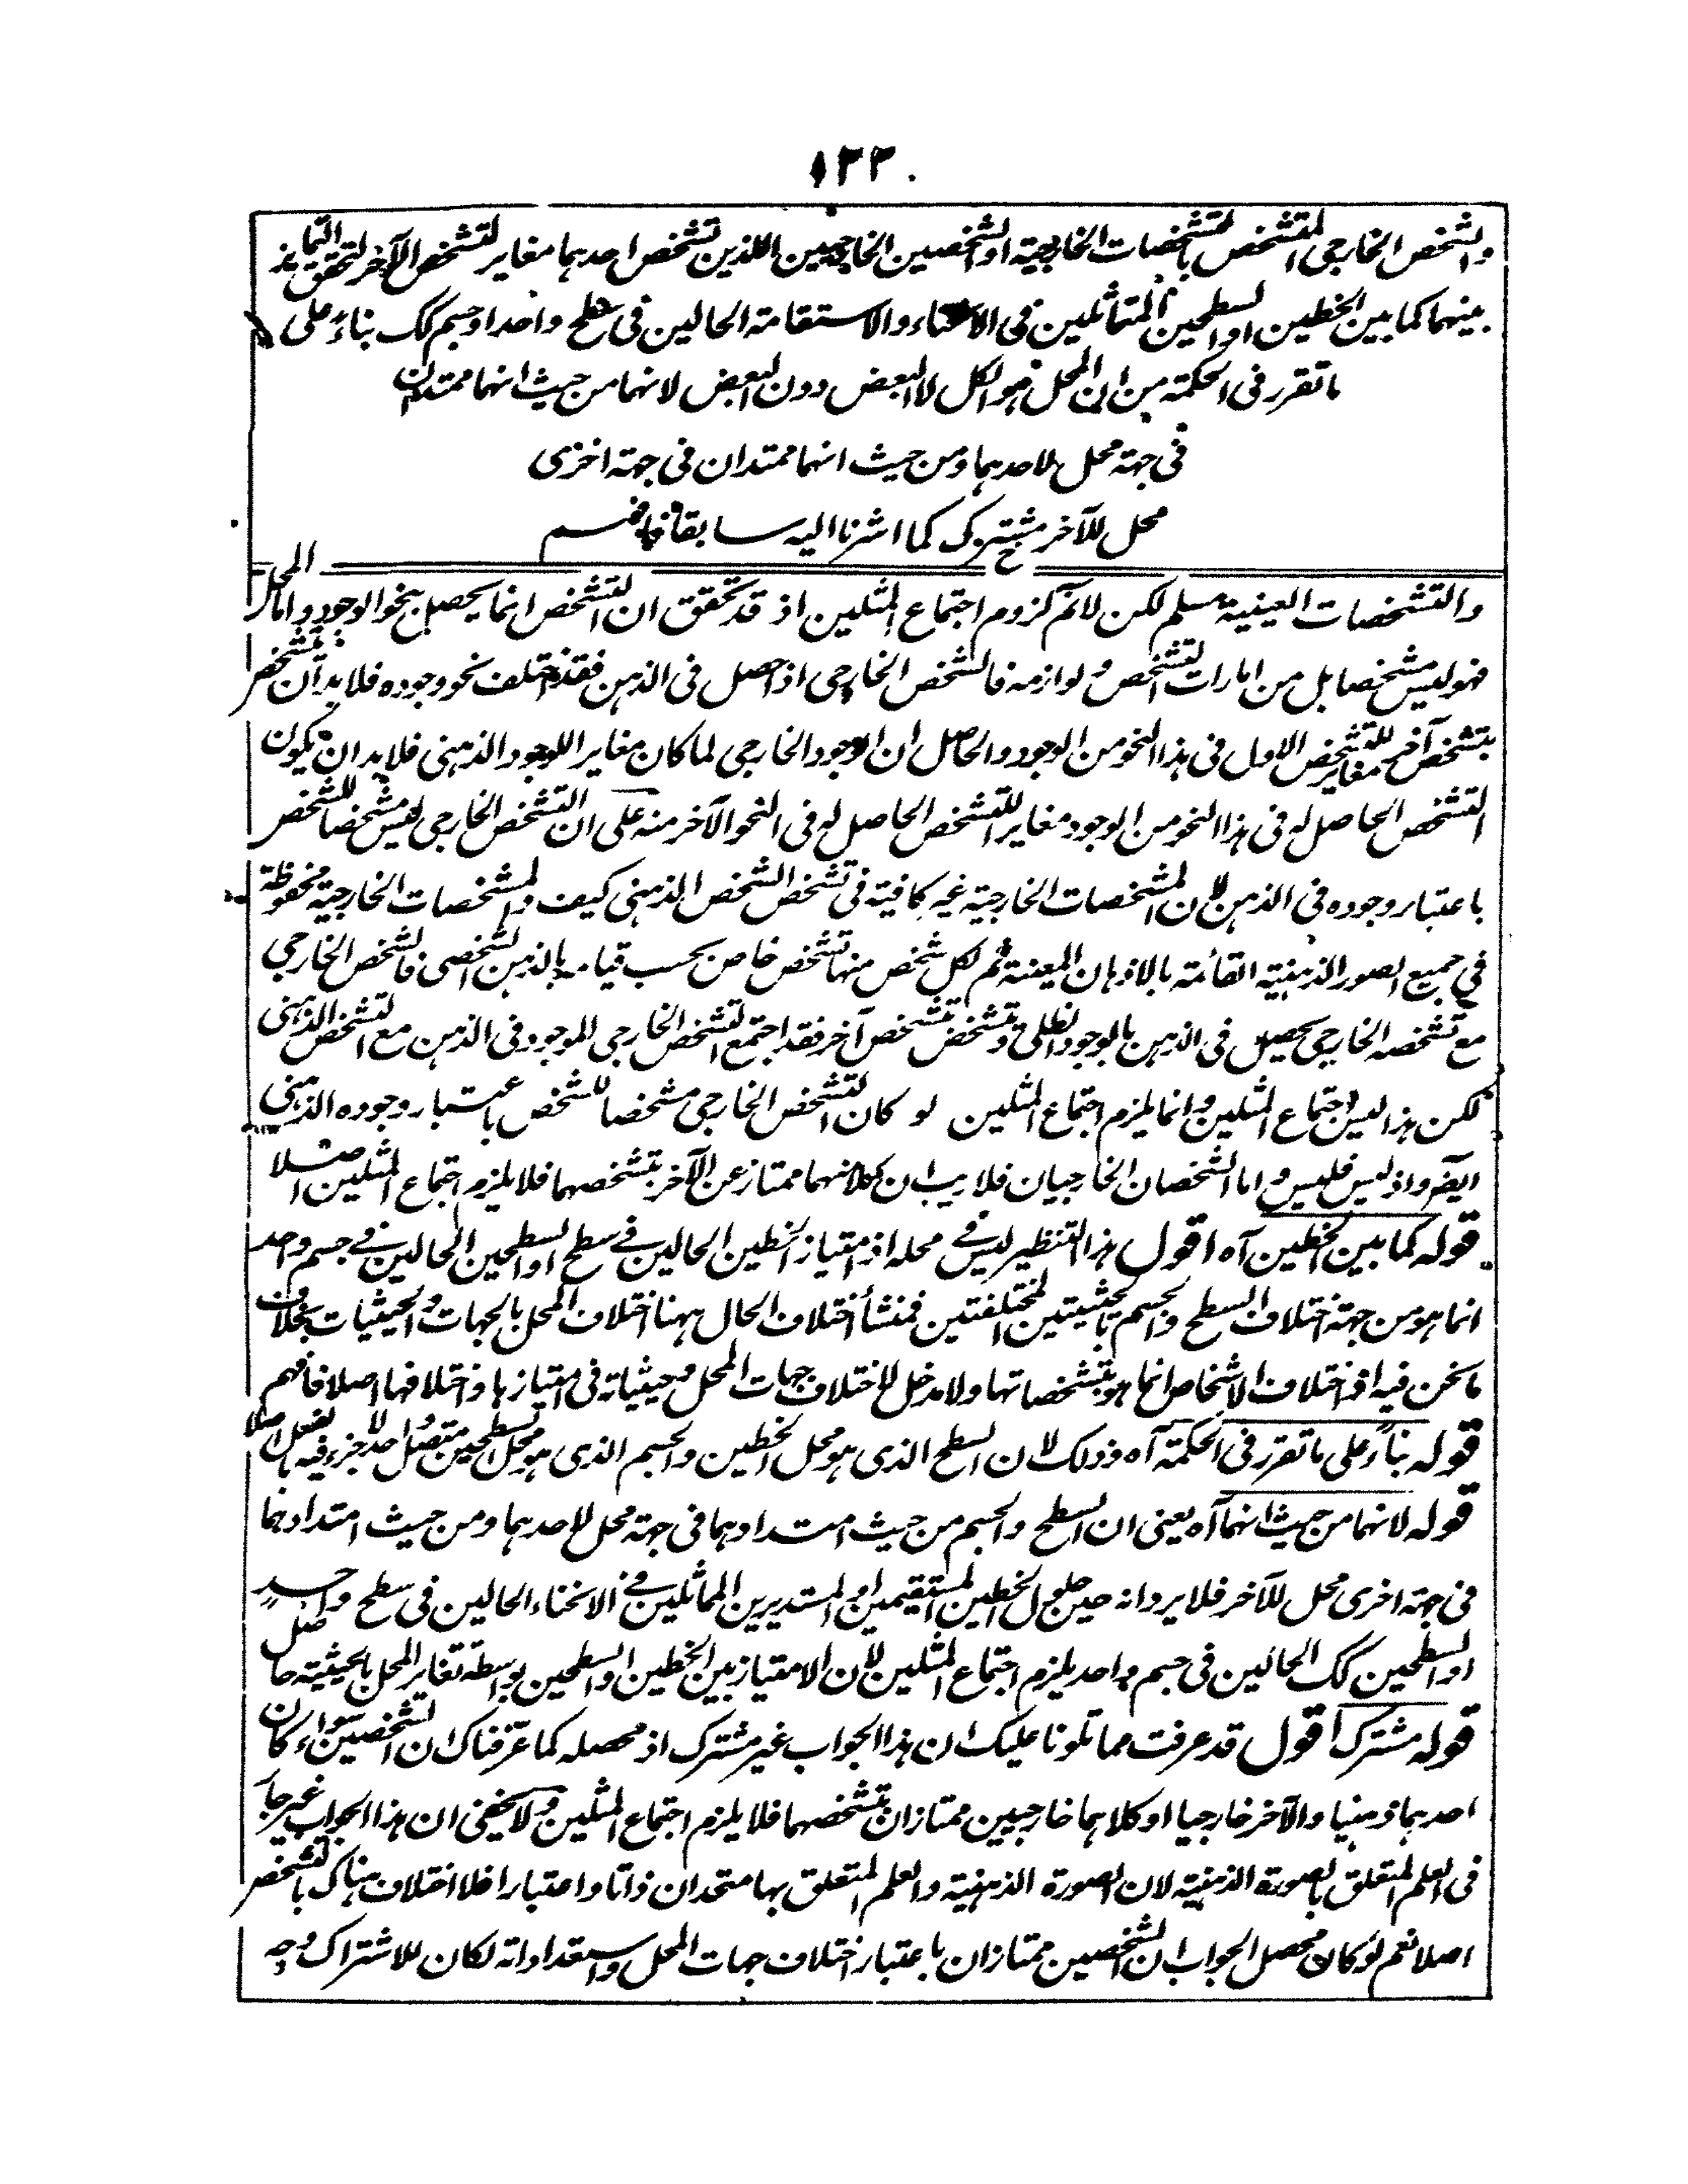 ١٢٣
والشخص الخارجي المتشخص بالتشخصات الخارجية او الشخصين الخارجيين اللذين تشخص احدهما مغاير لتشخص الآخر لتحقق التمايز
بينهما كما بين الخطين او السطحين المتماثلين في الانحناء والاستقامة الحالين في سطح واحد او جسم كك بناءً على
ما تقرر في الحكمة من ان المحل هو الكل لا البعض دون البعض لانهما من حيث انهما ممتدان
في جهة محل لاحدهما ومن حيث انهما ممتدان في جهة اخرى
محل للآخر مشترك كما اشرنا اليه سابقا فافهم
والتشخصات العينية مسلم لكن لانم لزوم اجتماع المثلين اذ قد تحقق ان التشخص انما يحصل بنحو الوجود واما المحل
فهو ليس مشخصا بل من امارات التشخص ولوازمه فالشخص الخارجي اذا حصل في الذهن فقد اختلف نحو وجوده فلا بد ان يتشخص
بتشخص آخر مغاير للتشخص الاول في هذا النحو من الوجود والحاصل ان الوجود الخارجي لما كان مغاير اللوجود الذهني فلا بد ان يكون
التشخص الحاصل له في هذا النحو من الوجود مغاير للتشخص الحاصل له في النحو الآخر منه على ان التشخص الخارجي ليس مشخصا للشخص
باعتبار وجوده في الذهن لان المشخصات الخارجية غير كافية في تشخص الشخص الذهني كيف والمشخصات الخارجية محفوظة
في جميع الصور الذهنية القائمة بالاذهان المعينة ثم لكل شخص منها تشخص خاص بحسب قيامه بالذهن الشخصي فالشخص الخارجي
مع تشخصه الخارجي يحصل في الذهن بالوجود الظلي وتشخص بتشخص آخر فقد اجتمع التشخص الخارجي الموجود في الذهن مع التشخص الذهني
لكن هذا ليس اجتماع المثلين وانما يلزم اجتماع المثلين لو كان التشخص الخارجي مشخصا للشخص باعتبار وجوده الذهني
ايضا واذ ليس فليس واما الشخصان الخارجيان فلا ريب ان كلا منهما ممتاز عن الآخر بتشخصهما فلا يلزم اجتماع المثلين اصلا
قوله كما بين الخطين آه اقول هذا التنظير ليس في محله اذ امتياز الخطين الحالين في سطح او السطحين الحالين في جسم واحد
انما هو من جهة اختلاف السطح والجسم بالحيثيتين المختلفتين فمنشأ اختلاف الحال ههنا اختلاف المحل بالجهات والحيثيات بخلاف
ما نحن فيه اذ اختلاف الاشخاص انما هو بتشخصاتها ولا مدخل لاختلاف جهات المحل وحيثياته في امتيازها واختلافها اصلا فافهم
قوله بناءً على ما تقرر في الحكمة آه وذلك لان السطح الذي هو محل الخطين والجسم الذي هو محل السطحين متصل واحد لا جزء فيه بالفعل اصلا
قوله لانهما من حيث انهما آه يعني ان السطح والجسم من حيث امتدادهما في جهة محل لاحدهما ومن حيث امتدادهما
في جهة اخرى محل للآخر فلا يرد انه حين حلول الخطين المستقيمين او المستديرين المماثلين في الانحناء الحالين في سطح واحد
او السطحين كك الحالين في جسم واحد يلزم اجتماع المثلين لان الامتياز بين الخطين والسطحين بواسطة تغاير المحل بالحيثية حاصل
قوله مشترك اقول قد عرفت مما تلونا عليك ان هذا الجواب غير مشترك اذ محصله كما عرفناك ان الشخصين سواء كان
احدهما ذهنيا والآخر خارجيا او كلاهما خارجيين ممتازان بتشخصهما فلا يلزم اجتماع المثلين ولا يخفى ان هذا الجواب غير جار
في العلم المتعلق بالصورة الذهنية لان الصورة الذهنية والعلم المتعلق بها متحدان ذاتا واعتبارا فلا اختلاف هناك بالتشخص
اصلا نعم لو كان محصل الجواب ان الشخصين ممتازان باعتبار اختلاف جهات المحل واستعداداته لكان للاشتراك وجه